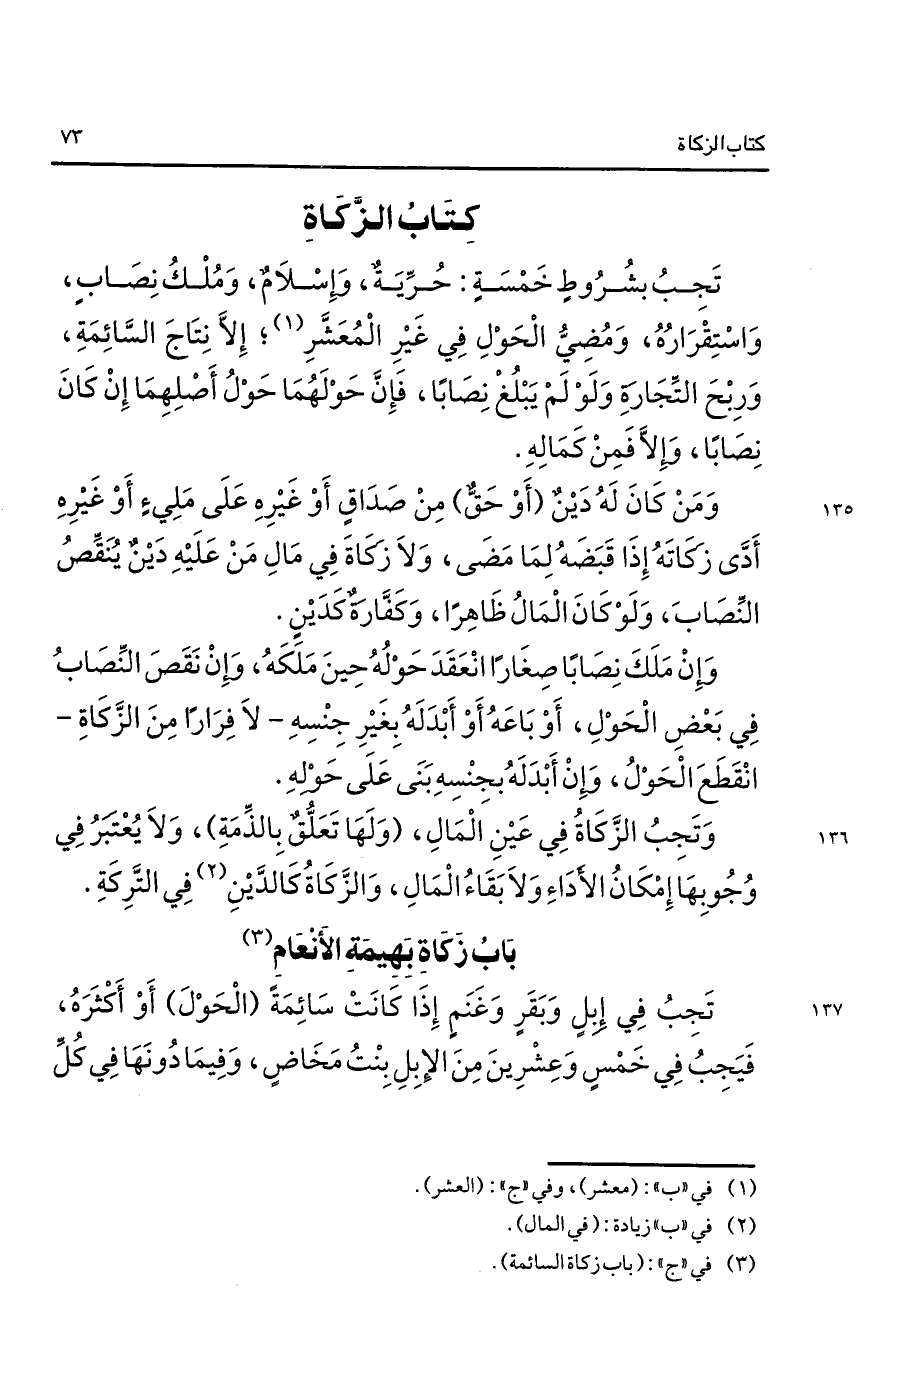 كتاب الزكاة ٧٣
كِتَابُ الزَّكَاةِ
تَجِبُ بشُرُوطٍ خَمْسَةٍ : حُرِّيَةٌ، وَإِسْلَامٌ، وَمُلْكُ نِصَابٍ،
وَاسْتِقْرَارُهُ، وَمُضِيُّ الْحَوْلِ فِي غَيْرِ الْمُعَشَّرِ(١)؛ إِلاَّ نِتَاجَ السَّائِمَةِ،
وَرِبْحَ التِّجَارَةِ وَلَوْ لَمْ يَبْلُغْ نِصَابًا، فَإِنَّ حَوْلَهُمَا حَوْلُ أَصْلِهِمَا إِنْ كَانَ
نِصَابًا، وَإِلاَّ فَمِنْ كَمَالِهِ.
١٣٥ وَمَنْ كَانَ لَهُ دَيْنٌ (أَوْ حَقٌّ) مِنْ صَدَاقٍ أَوْ غَيْرِهِ عَلَى مَلِيءٍ أَوْ غَيْرِهِ
أَدَّى زكَاتَهُ إِذَا قَبَضَهُ لِمَا مَضَى، وَلاَ زكَاةَ فِي مَالِ مَنْ عَلَيْهِ دَيْنٌ يُنَقِّصُ
النِّصَابَ، وَلَوْ كَانَ الْمَالُ ظَاهِرًا، وَكَفَّارَةٌ كَدَيْنٍ.
وَإِنْ مَلَكَ نِصَابًا صِغَارًا انْعَقَدَ حَوْلُهُ حِينَ مَلَكَهُ، وَإِنْ نَقَصَ النِّصَابُ
فِي بَعْضِ الْحَوْلِ، أَوْ بَاعَهُ أَوْ أَبْدَلَهُ بِغَيْرِ جِنْسِهِ - لاَ فِرَارًا مِنَ الزَّكَاةِ -
انْقَطَعَ الْحَوْلُ، وَإِنْ أَبْدَلَهُ بِجِنْسِهِ بَنَى عَلَى حَوْلِهِ.
١٣٦ وَتَجِبُ الزَّكَاةُ فِي عَيْنِ الْمَالِ، (وَلَهَا تَعَلُّقٌ بِالذِّمَةِ)، وَلاَ يُعْتَبَرُ فِي
وُجُوبِهَا إِمْكَانُ الأَدَاءِ وَلاَ بَقَاءُ الْمَالِ، وَالزَّكَاةُ كَالدَّيْنِ(٢) فِي التَّرِكَةِ.
بَابُ زَكَاةِ بَهِيمَةِ الأَنْعَامِ(٣)
١٣٧ تَجِبُ فِي إِبِلٍ وَبَقَرٍ وَغَنَمٍ إِذَا كَانَتْ سَائِمَةً (الْحَوْلَ) أَوْ أَكْثَرَهُ،
فَيَجِبُ فِي خَمْسٍ وَعِشْرِينَ مِنَ الإِبِلِ بِنْتُ مَخَاضٍ، وَفِيمَا دُونَهَا فِي كُلِّ
(١) في «ب»: (معشر)، وفي «ج»: (العشر).
(٢) في «ب» زيادة: (في المال).
(٣) في «ج»: (باب زكاة السائمة).